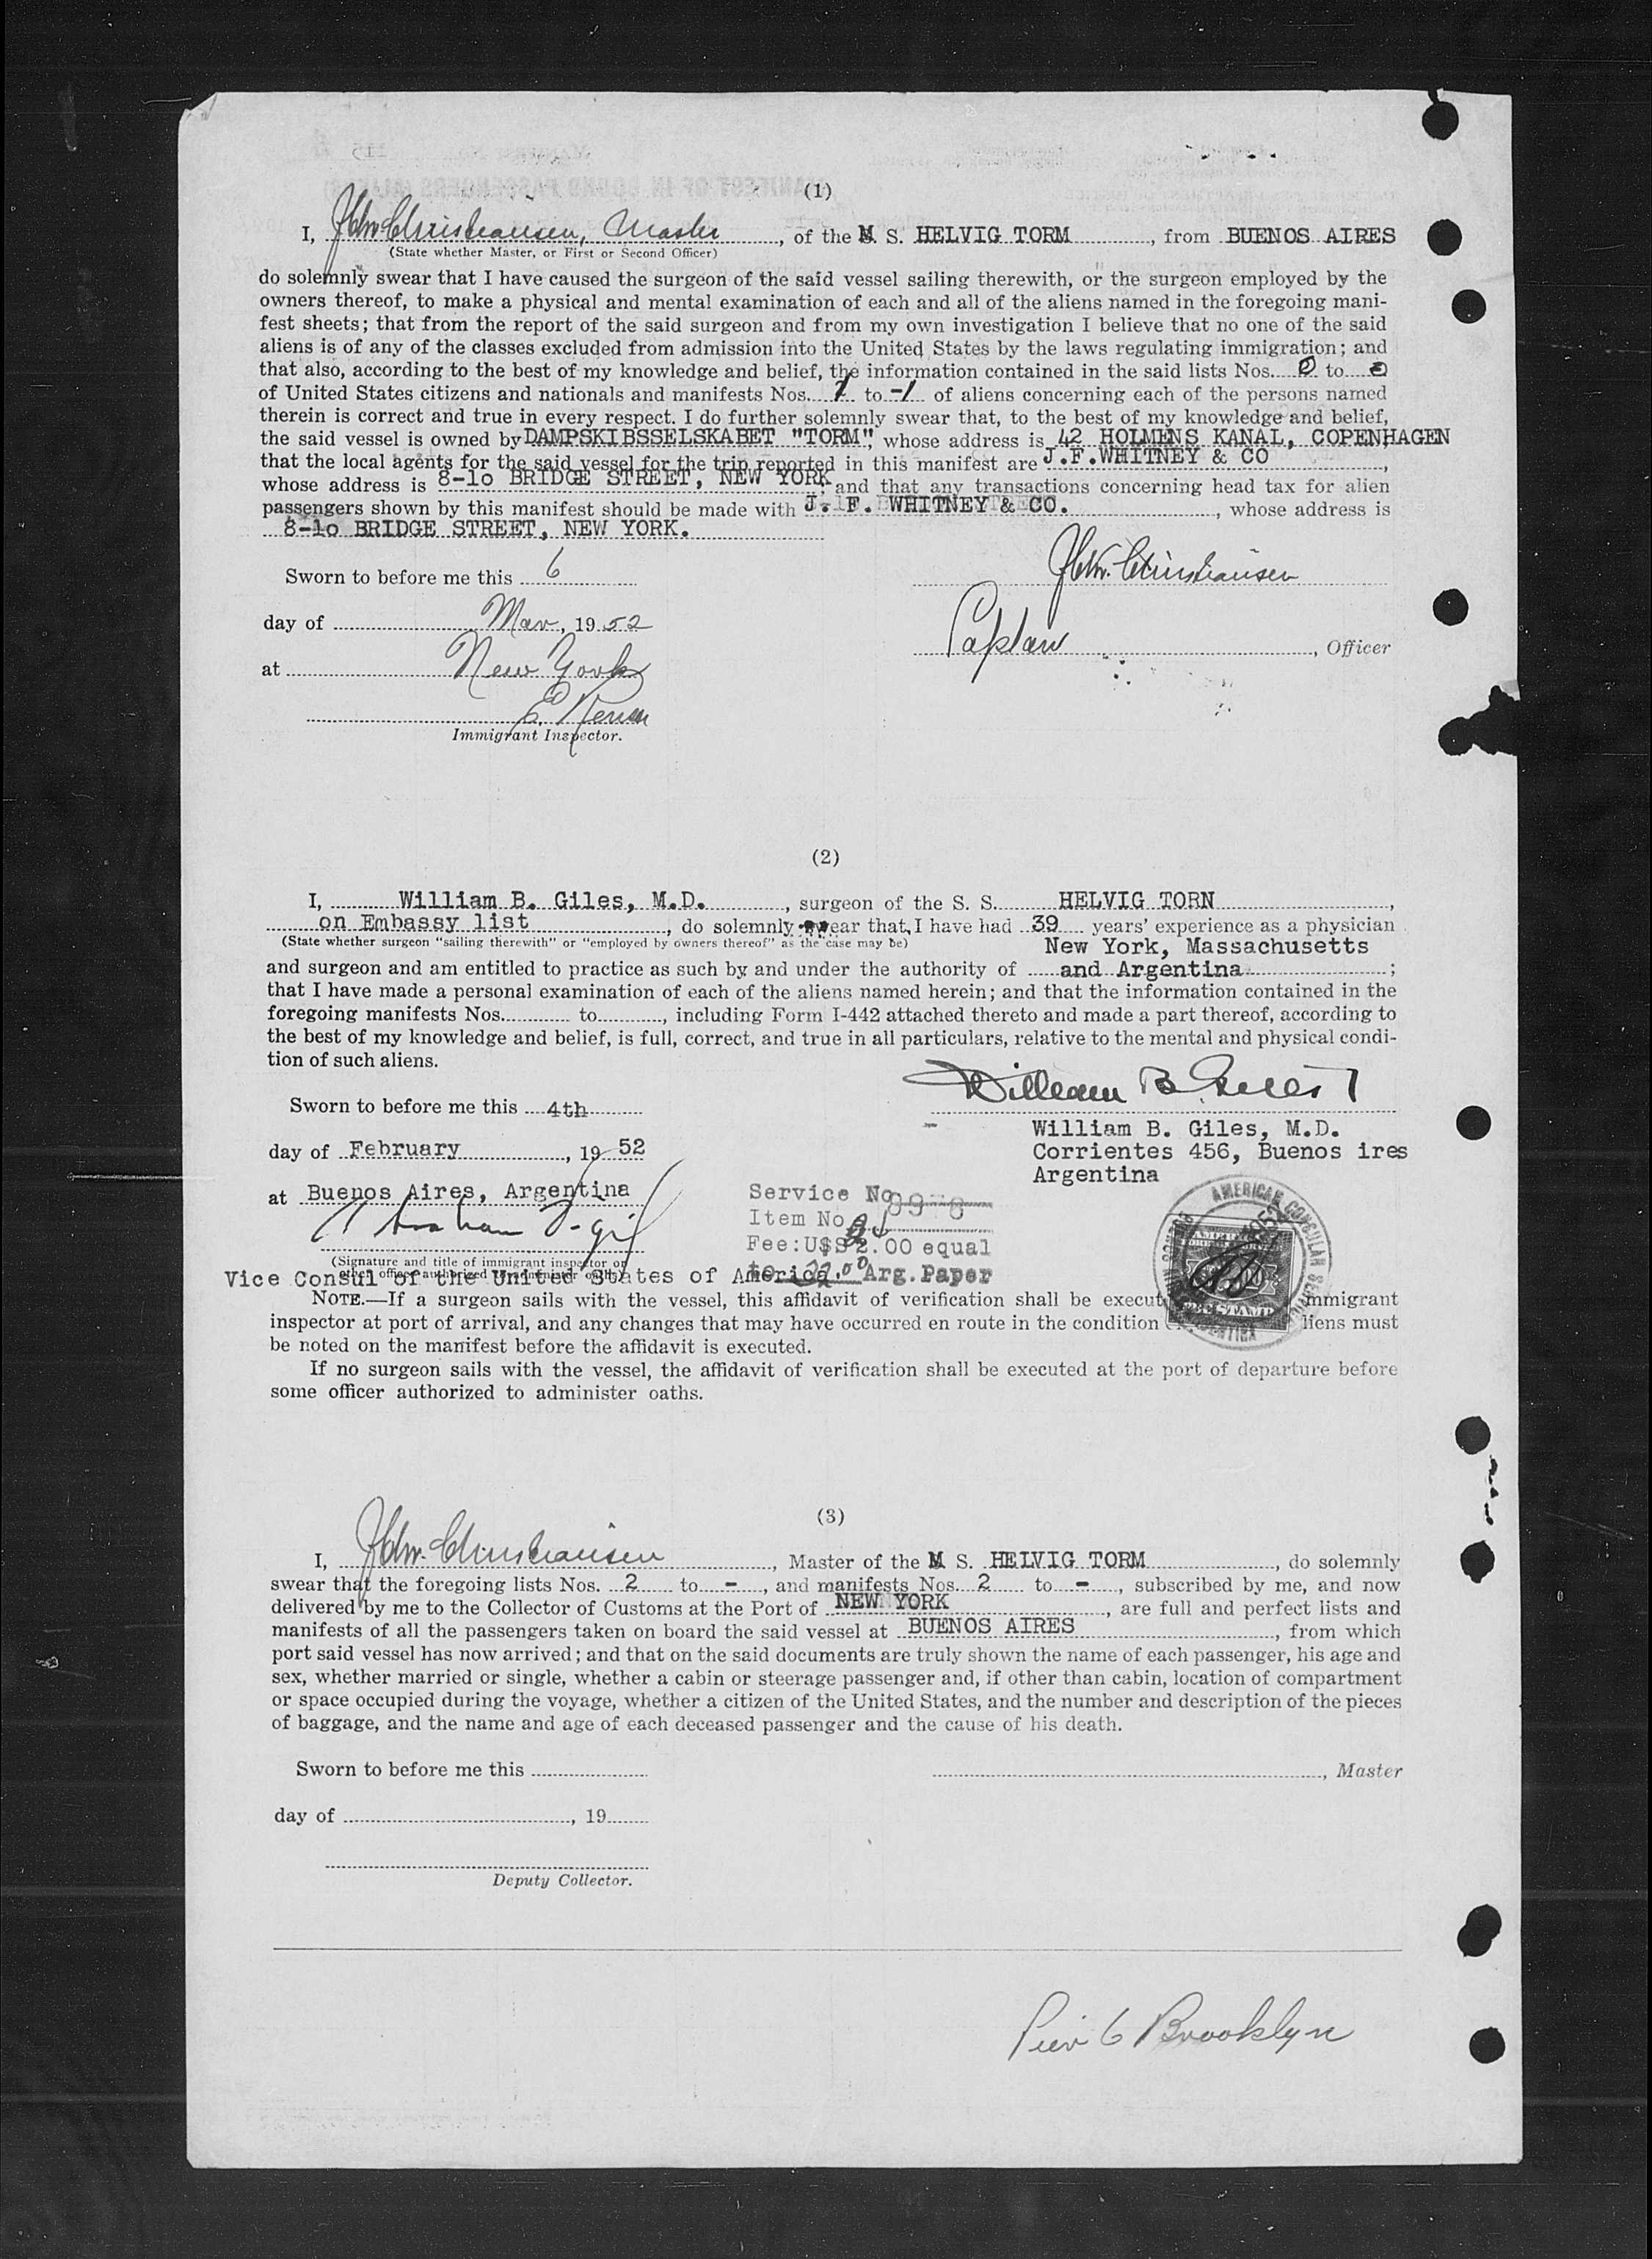 (1)
I, Christiansen, Master, of the M. S. HELVIG TORM, from BUENOS AIRES
(State whether Master, or First or Second Officer)
do solemnly swear that I have caused the surgeon of the said vessel sailing therewith, or the surgeon employed by the
owners thereof, to make a physical and mental examination of each and all of the aliens named in the foregoing mani-
fest sheets; that from the report of the said surgeon and from my own investigation I believe that no one of the said
aliens is of any of the classes excluded from admission into the United States by the laws regulating immigration; and
that also, according to the best of my knowledge and belief, the information contained in the said lists Nos. 0 to 0
of United States citizens and nationals and manifests Nos. 1 to -1 of aliens concerning each of the persons named
therein is correct and true in every respect. I do further solemnly swear that, to the best of my knowledge and belief,
the said vessel is owned by DAMPSKIBSSELSKABET "TORM", whose address is 42 HOLMENS KANAL, COPENHAGEN
that the local agents for the said vessel for the trip reported in this manifest are J.F.WHITNEY & CO,
whose address is 8-10 BRIDGE STREET, NEW YORK; and that any transactions concerning head tax for alien
passengers shown by this manifest should be made with J. F. WHITNEY & CO., whose address is
8-10 BRIDGE STREET, NEW YORK.
Sworn to before me this 6
Christiansen
day of Mar, 1952
Captain, Officer
at New York
Immigrant Inspector.
(2)
I, William B. Giles, M.D., surgeon of the S. S. HELVIG TORN,
on Embassy list, do solemnly swear that I have had 39 years' experience as a physician
(State whether surgeon "sailing therewith" or "employed by owners thereof" as the case may be)
New York, Massachusetts
and surgeon and am entitled to practice as such by and under the authority of and Argentina;
that I have made a personal examination of each of the aliens named herein; and that the information contained in the
foregoing manifests Nos. to, including Form I-442 attached thereto and made a part thereof, according to
the best of my knowledge and belief, is full, correct, and true in all particulars, relative to the mental and physical condi-
tion of such aliens.
William B. Giles
Sworn to before me this 4th
William B. Giles, M.D.
day of February, 1952
Corrientes 456, Buenos ires
Argentina
at Buenos Aires, Argentina
Service No. 8978
Item No.
Fee:U$S2.00 equal
to Arg. Paper
(Signature and title of immigrant inspector or
Vice Consul of the United States of America.
AMERICAN CONSULAR SERVICE
NOTE.—If a surgeon sails with the vessel, this affidavit of verification shall be execut mmigrant
inspector at port of arrival, and any changes that may have occurred en route in the condition liens must
be noted on the manifest before the affidavit is executed.
If no surgeon sails with the vessel, the affidavit of verification shall be executed at the port of departure before
some officer authorized to administer oaths.
(3)
I, Christiansen, Master of the M. S. HELVIG TORM, do solemnly
swear that the foregoing lists Nos. 2 to -, and manifests Nos. 2 to -, subscribed by me, and now
delivered by me to the Collector of Customs at the Port of NEW YORK, are full and perfect lists and
manifests of all the passengers taken on board the said vessel at BUENOS AIRES, from which
port said vessel has now arrived; and that on the said documents are truly shown the name of each passenger, his age and
sex, whether married or single, whether a cabin or steerage passenger and, if other than cabin, location of compartment
or space occupied during the voyage, whether a citizen of the United States, and the number and description of the pieces
of baggage, and the name and age of each deceased passenger and the cause of his death.
Sworn to before me this
, Master
day of, 19
Deputy Collector.
Pier 6 Brooklyn